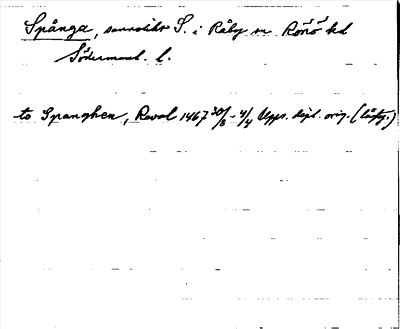 Spånga, sannolikt S. i Råby sn Rönö hd
Södermanl. l.
to Spanghen, Reval 1467 30/3 - 4/4 Upps. dipl. orig. (lågty.)